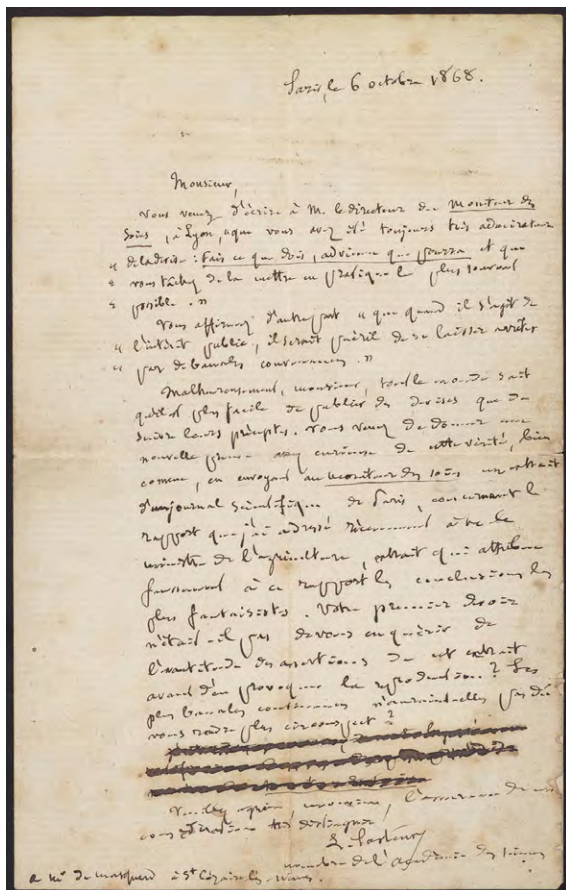 Paris, le 6 octobre 1868.
Monsieur,
Vous venez d'écrire à M. le directeur du Moniteur des
Soies, à Lyon, "que vous avez été toujours très admirateur
" de la devise : fais ce que dois, advienne que pourra et que
" vous tâchez de la mettre en pratique le plus souvent
" possible. "
Vous affirmez d'autre part "que quand il s'agit de
" l'intérêt public, il serait puéril de se laisser arrêter
" par de banales convenances. "
Malheureusement, monsieur, tout le monde sait
qu'il est plus facile de publier des devises que de
suivre leurs préceptes. Vous venez de donner une
nouvelle preuve assez curieuse de cette vérité, bien
connue, en envoyant au moniteur des soies un extrait
d'un journal scientifique de Paris, concernant le
rapport que j'ai adressé récemment à M. le
ministre de l'agriculture, extrait qui attribue
faussement à ce rapport les conclusions les
plus fantaisistes. Votre premier devoir
n'était-il pas de vous enquérir de
l'exactitude des assertions de cet extrait
avant d'en provoquer la reproduction ? Les
plus banales convenances n'auraient-elles pas dû
vous rendre plus circonspect ?
Veuillez agréer, monsieur, l'assurance de ma
considération très distinguée
L. Pasteur
membre de l'académie des sciences
a Mr de masquard à St Cézaire lès Nimes.